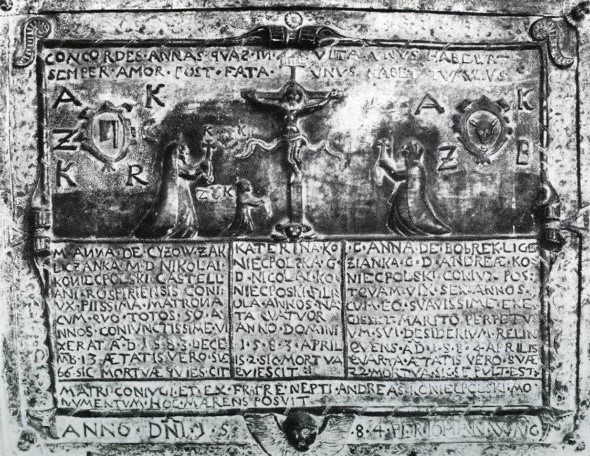 CONCORDES ANNAS QUAS
SEMPER AMOR POST FATA UNUS HABET TUMULUS
A K
Z
K R
K K
Z K
A K
Z B
M ANNA DE CYZOW ZAK
LICZANKA M D NIKOLAI
KONIECPOLSKI CASTELL
ANI ROSPIRIENSIS CONI
UX PIISSIMA MATRONA
CUM VIVO TOTOS 50 A
NNOS CONIUNCTISSIME VI
XERAT A D 1583 DECE
MB 13 ÆTATIS VERO SUÆ
66 SIC MORTUÆ QUIESCIT
KATERINA KO
NIECPOLSKA G
D NICOLAI KO
NIECPOSKI FILI
OLA ANNOS NA
TA QUATUOR
ANNO DOMINI
1583 APRIL
15 2 SIC MORTVA
QVIESCIT
G ANNA DE BOBREK LIGE
ZIANKA G D ANDREÆ KO
NIECPOLSKI CONIVX POS
TQVAM VIX SEN ANNOS
CUM EO SVAVISSIME EXE
GISSET MARITO PERPETV
VM SVI DESIDERIVM RELIN
QVENS A D 1584 APRILIS
QVARTA ÆTATIS VERO SVÆ
22 MORTVA SIC SEPULT EST
MATRI CONIVGI ET EX FRATRE NEPTI ANDREAS KONIECPOLSKI MO
NUMENTUM HOC MÆRENS POSVIT
ANNO DNI 15 84 PER